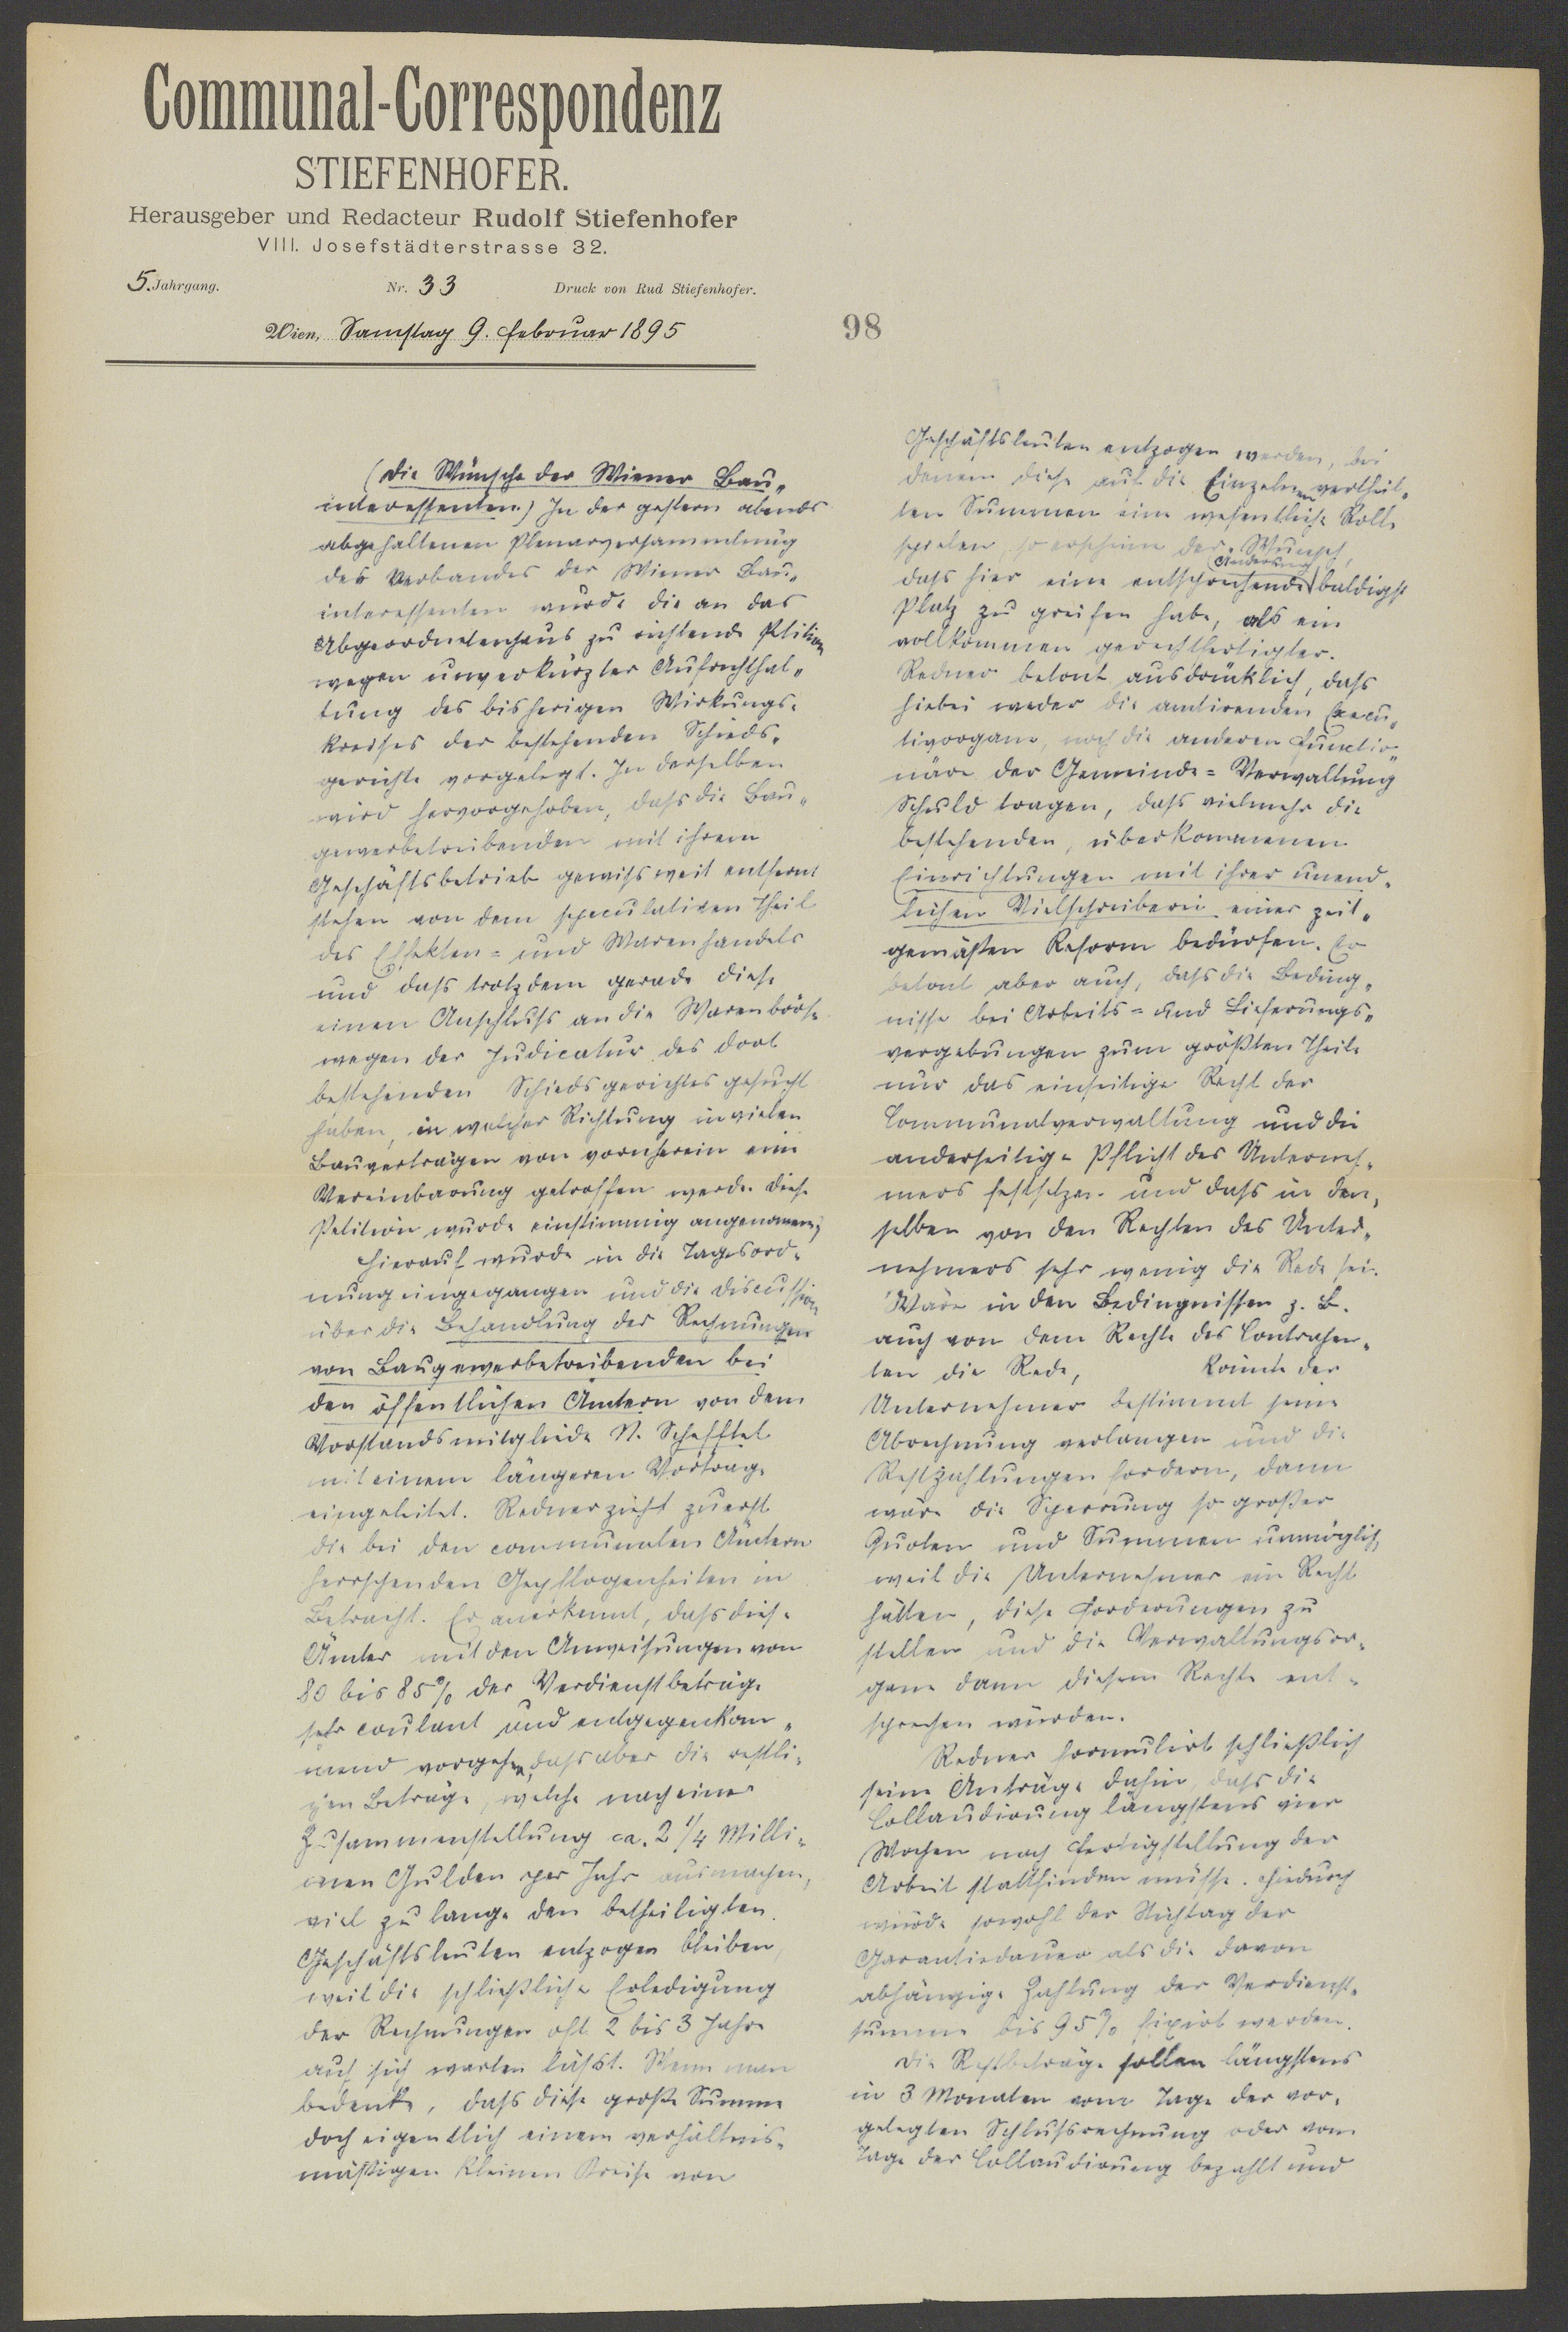 Communal-Correspondenz
STIEFENHOFER.
Herausgeber und Redacteur Rudolf Stiefenhofer
VIII. Josefstädterstrasse 32.
5. Jahrgang. Nr. 33 Druck von Rud Stiefenhofer.
Wien, Samstag 9. Februar 1895
98
(Die Wünsche der Wiener Bau„
interessenten.) In der gestern abends
abgehaltenen Plenarversammlung
des Verbandes der Wiener Bau„
interessenten wurde die an das
Abgeordnetenhaus zu richtende Petition
wegen unverkürzter Aufrechthal„
tung des bisherigen Wirkungs-
kreises der bestehenden Schieds-
gerichte vorgelegt. In derselben
wird hervorgehoben, dass die Bau„
gewerbetreibenden mit ihrem
Geschäftsbetrieb gewiss weit entfernt
stehen von dem speculativen Theil
des Effekten= und Warenhandels
und dass trotzdem gerade diese
einen Anschluss an die Warenbörse
wegen der Judicatur des dort
bestehenden Schiedsgerichtes gesucht
haben, in welcher Richtung in vielen
Bauverträgen von vornherein eine
Vereinbarung getroffen werde. Diese
Petition wurde einstimmig angenommen,
Hierauf wurde in die Tagesord-
nung eingegangen und die Discussion
über die Behandlung der Rechnungen
von Baugewerbetreibenden bei
den öffentlichen Ämtern von dem
Vorstandsmitgliede N. Schefftel
mit einem längeren Vortrage
eingeleitet. Redner zieht zuerst
die bei den communalen Ämtern
herrschenden Gepflogenheiten in
Betracht. Er anerkennt, dass diese
Ämter mit den Anweisungen von
80 bis 85% der Verdienstbeträge
sehr coulant und entgegenkom„
mend vorgehen, dass aber die restli-
chen Beträge, welche nach einer
Zusammenstellung ca. 2 1/4 Milli-
onen Gulden per Jahr ausmachen,
viel zu lange den betheiligten
Geschäftsleuten entzogen bleiben,
weil die schließliche Erledigung
der Rechnungen oft 2 bis 3 Jahre
auf sich warten lässt. Wenn man
bedenke, dass diese große Summe
doch eigentlich einem verhältnis-
mäßigen kleinen Kreise von
Geschäftsleuten entzogen werden, bei
denen diese auf die Einzelnen vertheil„
ten Summen eine wesentliche Rolle
spielen, so erscheine der Wunsch,
dass hier eine entsprechende Änderung baldigst
Platz zu greifen habe, als ein
vollkommen gerechtfertigter.
Redner betont ausdrücklich, dass
hiebei weder die amtirenden Execu„
tivorgane, noch die anderen Functio„
näre der Gemeinde=Verwaltung
Schuld tragen, dass vielmehr die
bestehenden, überkommenen
Einrichtungen mit ihrer unend-
lichen Vielschreiberei einer zeit„
gemäßen Reform bedürfen. Er
betont aber auch, dass die Beding„
nisse bei Arbeits= und Lieferungs„
vergebungen zum größten Theile
nur das einseitige Recht der
Communalverwaltung und die
anderseitige Pflicht des Unterneh-
mers festsetzen und dass in den-
selben von den Rechten des Unter-
nehmers sehr wenig die Rede sei.
Wäre in den Bedingnissen z. B.
auch von dem Rechte des Contrahen-
ten die Rede, könnte der
Unternehmer bestimmt seine
Abrechnung verlangen und die
Restzahlungen fordern, dann
wäre die Sperrung so großer
Quoten und Summen unmöglich,
weil die Unternehmer ein Recht
hätten, diese Forderungen zu
stellen und die Verwaltungsor-
gane dann diesem Rechte ent-
sprechen würden.
Redner formulirt schließlich
seine Anträge dahin, dass die
Collaudirung längstens vier
Wochen nach Fertigstellung der
Arbeit stattfinden müsse. Hiedurch
würde sowohl der Stichtag der
Garantiedauer als die davon
abhängige Zahlung der Verdienst-
summe bis 95% fixirt werden.
Die Restbeträge sollen längstens
in 3 Monaten vom Tage der vor-
gelegten Schlussrechnung oder vom
Tage der Collaudirung bezahlt und